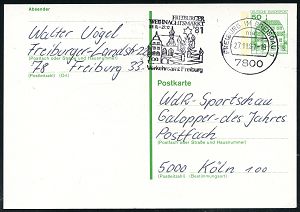 Absender
Walter Vogel
Freiburger-Landstr.
(Postfach oder Straße und Hausnummer)
78 Freiburg 33
(Postleitzahl) (Ort)
FREIBURGER
WEIHNACHTSMARKT
'81
Verkehrsamt Freiburg
FREIBURG IM BREISGAU
27.11.81
7800
DEUTSCHE BUNDESPOST
50
Postkarte
WdR-Sportschau
Galopper-des Jahres
Postfach
(Postfach oder Straße und Hausnummer)
5000 Köln 100
(Postleitzahl) (Bestimmungsort)